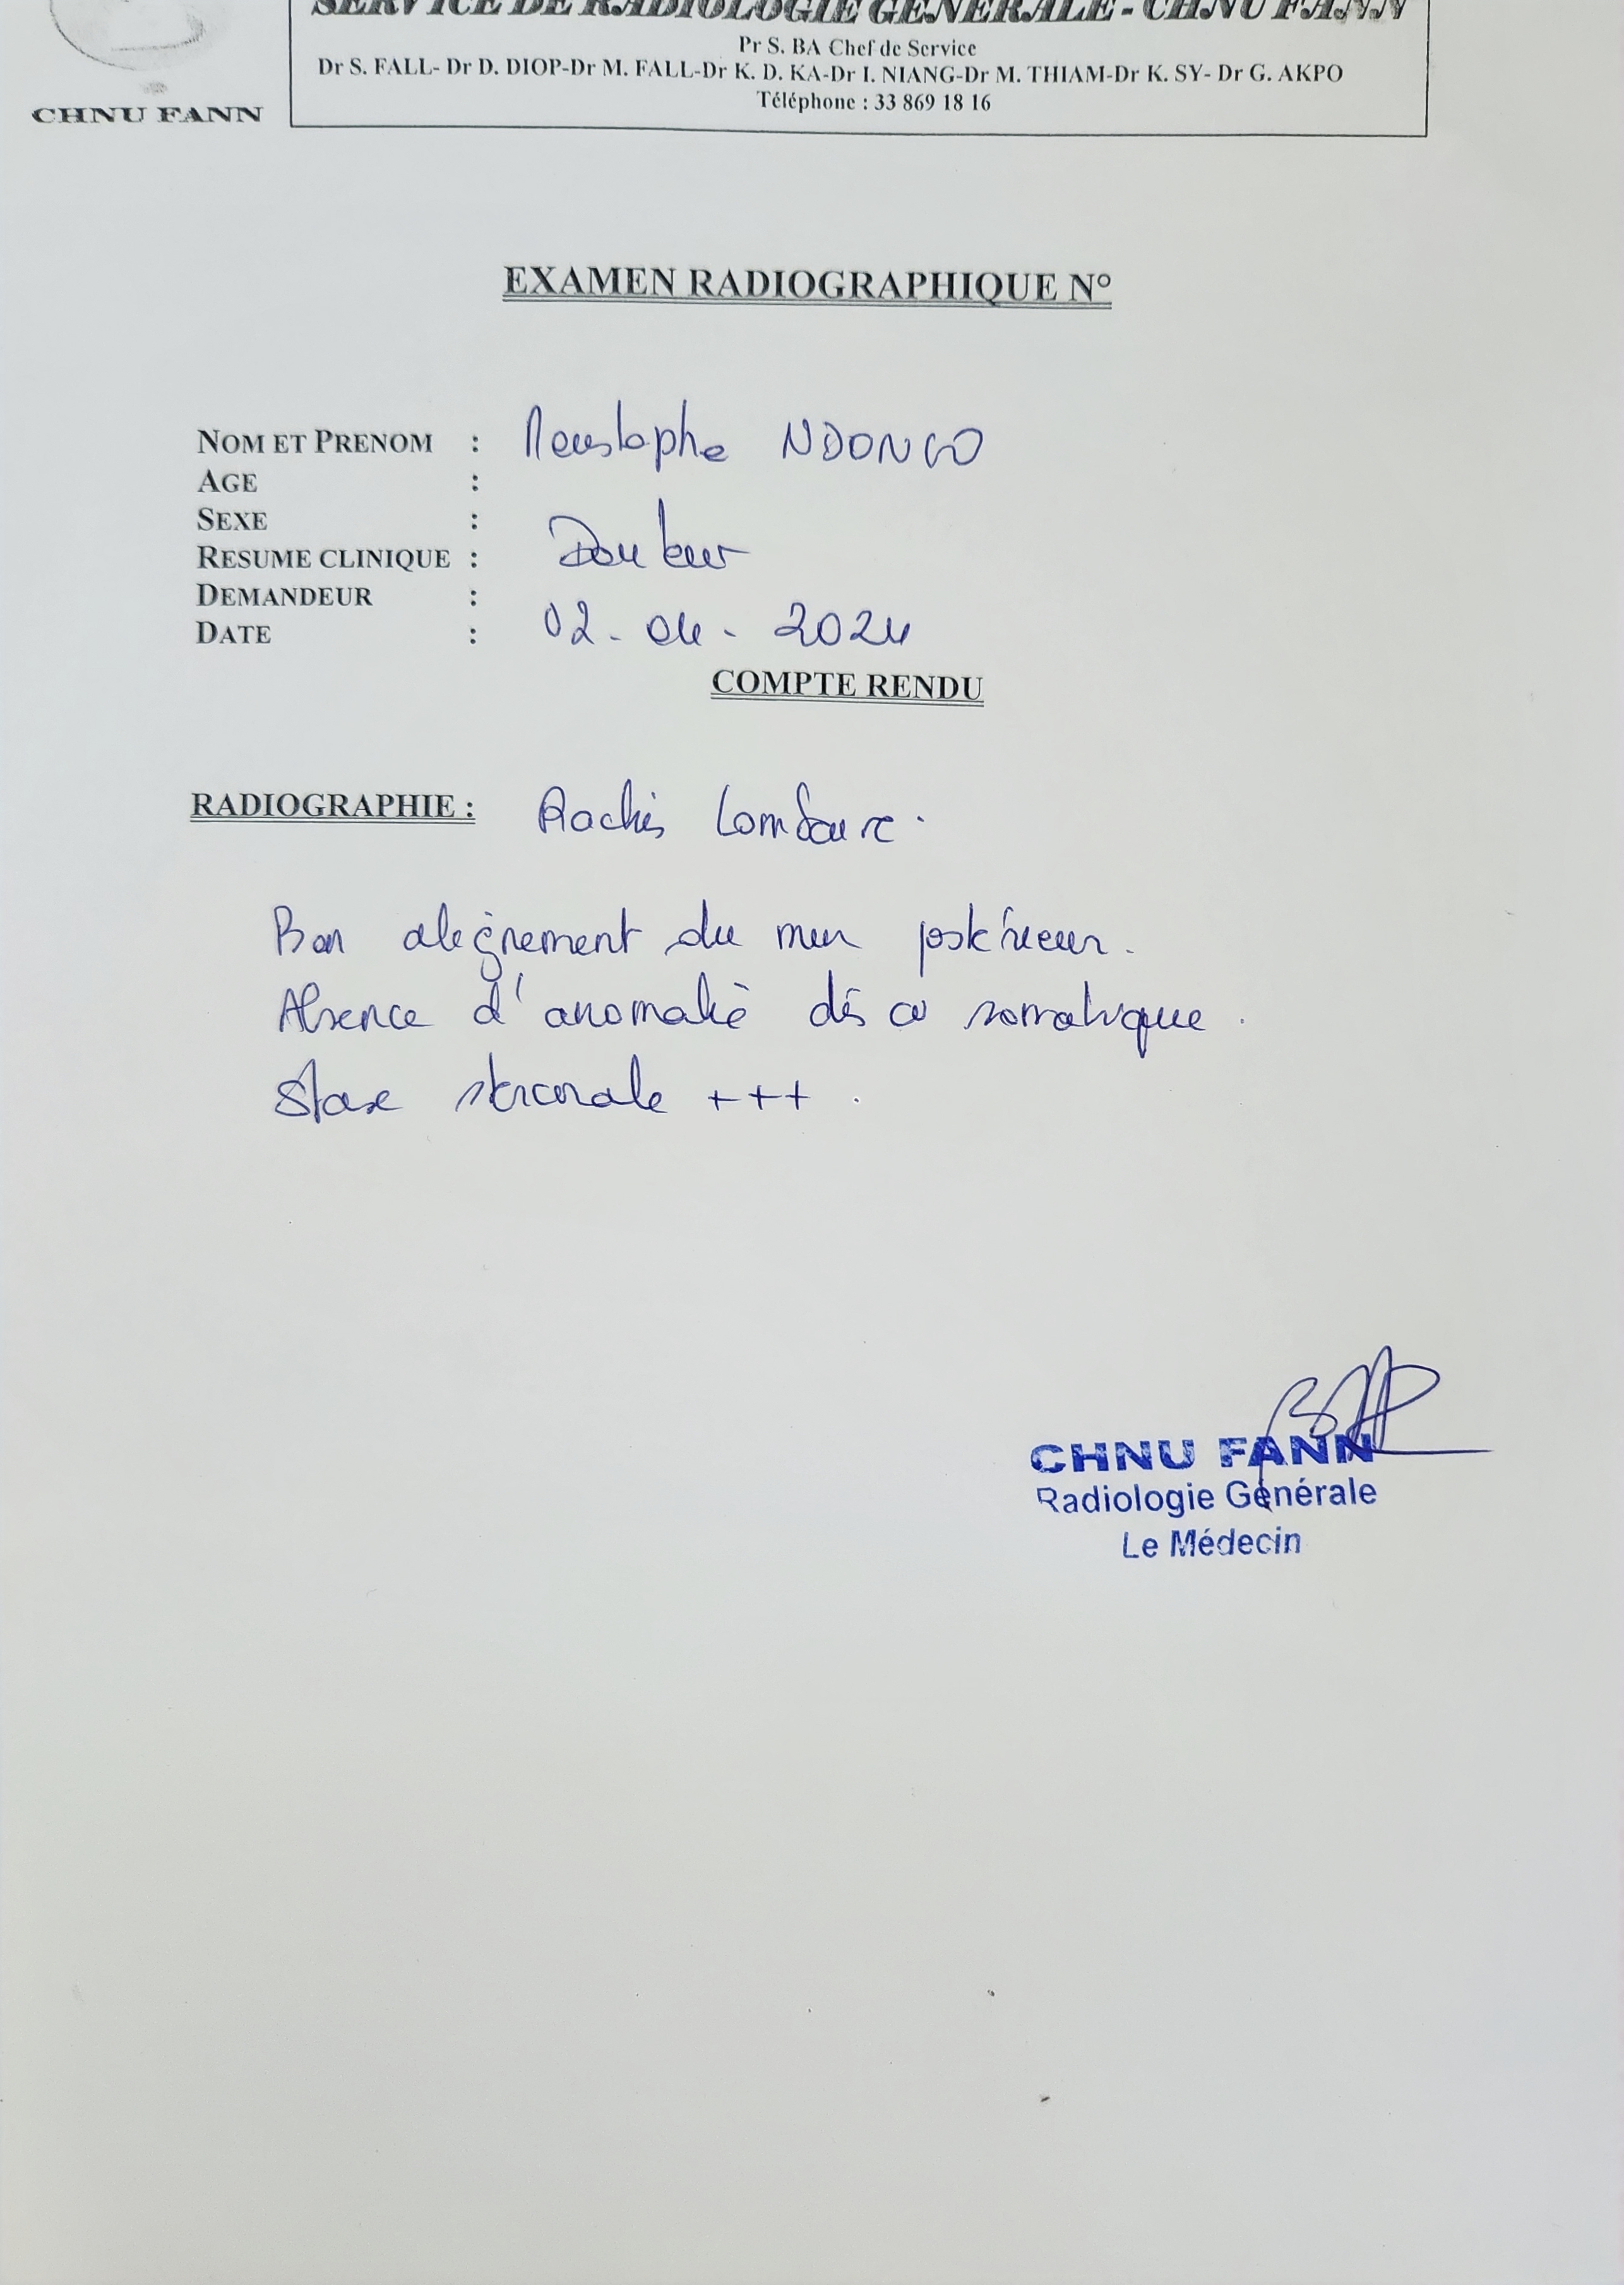 SERVICE DE RADIOLOGIE GENERALE - CHNU FANN
Pr S. BA Chef de Service
Dr S. FALL- Dr D. DIOP-Dr M. FALL-Dr K. D. KA-Dr I. NIANG-Dr M. THIAM-Dr K. SY- Dr G. AKPO
Téléphone : 33 869 18 16
CHNU FANN
EXAMEN RADIOGRAPHIQUE N°
NOM ET PRENOM : Moustapha NDONGO
AGE :
SEXE :
RESUME CLINIQUE : Douleur
DEMANDEUR :
DATE : 02-04-2024
COMPTE RENDU
RADIOGRAPHIE : Rachis Lombaire.
Bon alignement du mur postérieur.
Absence d'anomalie disco somatique.
Stase stercorale +++.
CHNU FANN
Radiologie Générale
Le Médecin